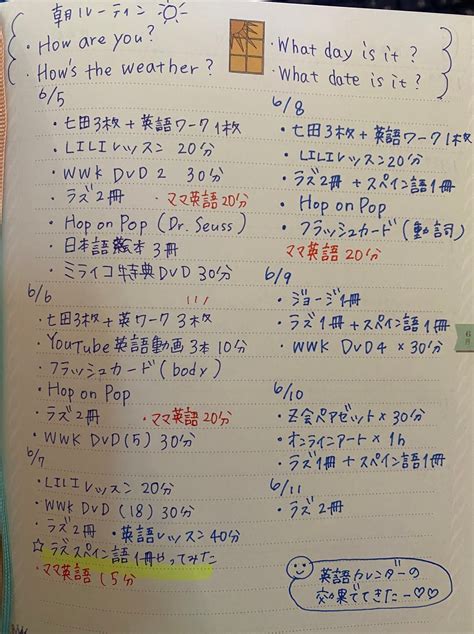 朝ルーティン
・How are you?
・How's the weather?
・What day is it?
・What date is it?
6/5
・七田3枚+英語ワーク1枚
・LILIレッスン 20分
・WWK DVD 2 30分
・ラズ2冊 ・ママ英語20分
・Hop on Pop (Dr. Seuss)
・日本語絵本 3冊
・ミライコ特典DVD 30分
6/6
・七田3枚+英ワーク3枚
・YouTube英語動画3本10分
・フラッシュカード(body)
・Hop on Pop
・ラズ2冊 ・ママ英語20分
・WWK DVD(5) 30分
6/7
・LILIレッスン 20分
・WWK DVD (18) 30分
・ラズ2冊 ・英語レッスン40分
☆ラズスペイン語1冊やってみた
・ママ英語15分
6/8
・七田3枚+英語ワーク1枚
・LILIレッスン20分
・ラズ2冊+スペイン語1冊
・Hop on Pop
・フラッシュカード(動詞)
ママ英語20分
6/9
・ジョージ1冊
・ラズ1冊+スペイン語1冊
・WWK DVD4×30分
6/10
・Z会ペアゼット×30分
・オンラインアート×1h
・ラズ1冊+スペイン語1冊
6/11
・ラズ2冊
英語カレンダーの
効果でてきたー♡♡